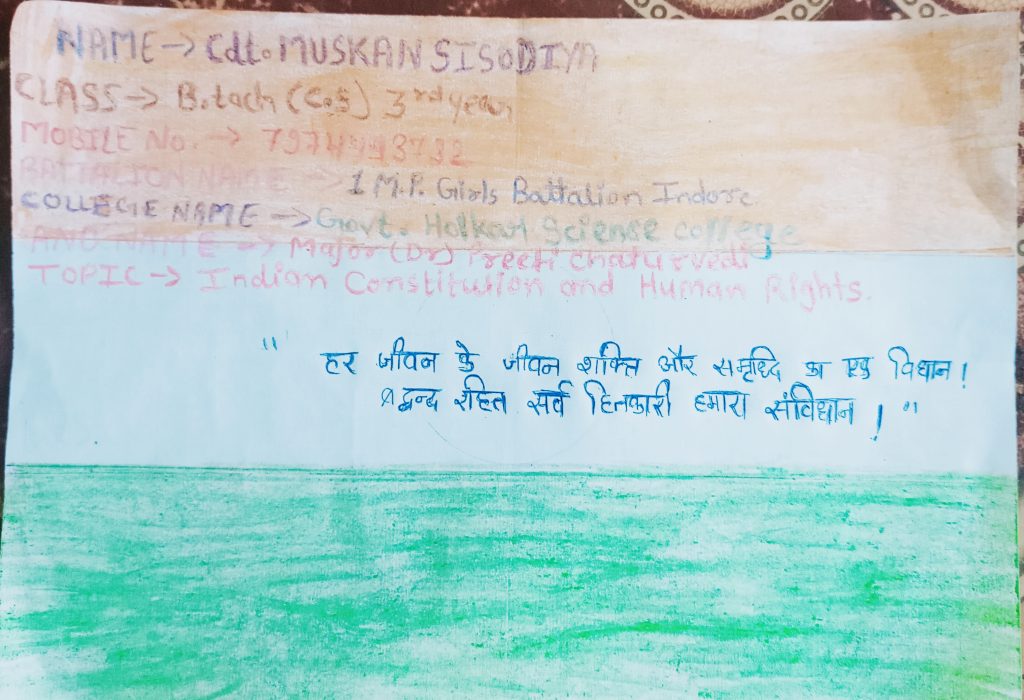 NAME → Cdt. MUSKAN SISODIYA
CLASS → B.tach (C.S) 3rd year
MOBILE No. → 7974493792
BATTALION NAME → 1 M.P. Girls Battalion Indore.
COLLEGE NAME → Govt. Holkar Science college
ANO NAME → Major (Dr) Preeti Chaturvedi
TOPIC → Indian Constitution and Human Rights.
" हर जीवन के जीवन शक्ति और समृध्दि का एक विधान!
द्वन्द रहित सर्व हितकारी हमारा संविधान! "